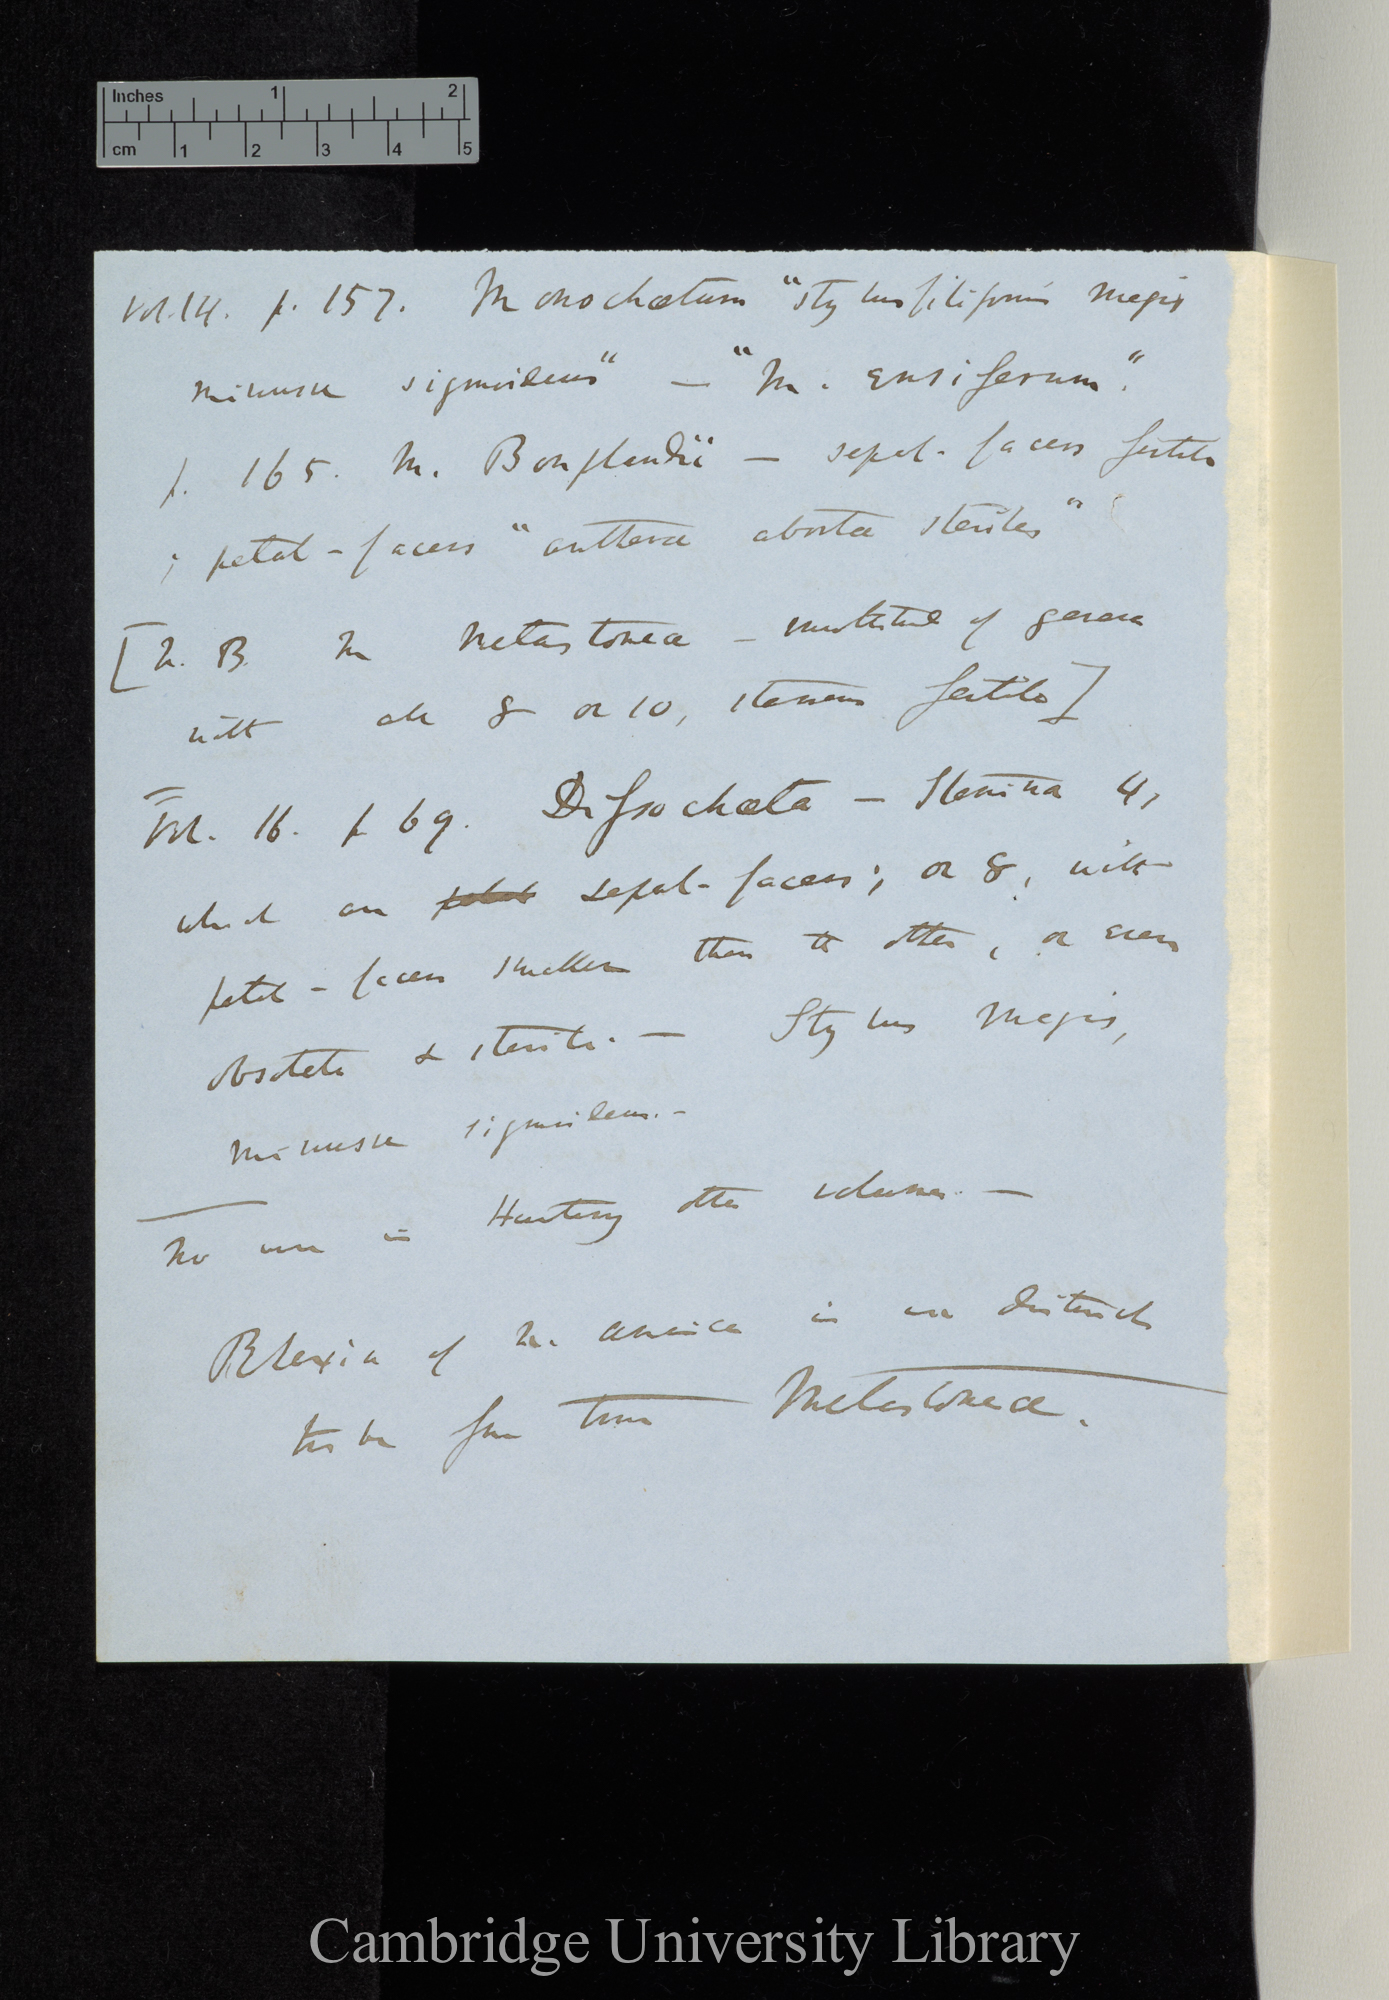 Inches 1 2
cm 1 2 3 4 5
Vol. 14. p. 157. Monochætum "stylus filiformis magis
minusve sigmoideus" — "M. ensiferum".
p. 165. M. Bonplandii — sepal-facers fertile
; petal-facers "antheræ abortæ steriles"
[N. B. In Melastomeæ — multitude of genera
with all 8 or 10, stamens fertile]
Vol. 16. p 69. Dissochæta — Stamina 4,
which are petal sepal-facers; or 8, with
petal-facers smaller than the other, or even
obsolete & sterile. — Stylus magis,
minusve sigmoideus. —
No use in Hunting other volumes. —
Rhexia of N. America is in distinct
tribe from true Melastomeæ.
Cambridge University Library